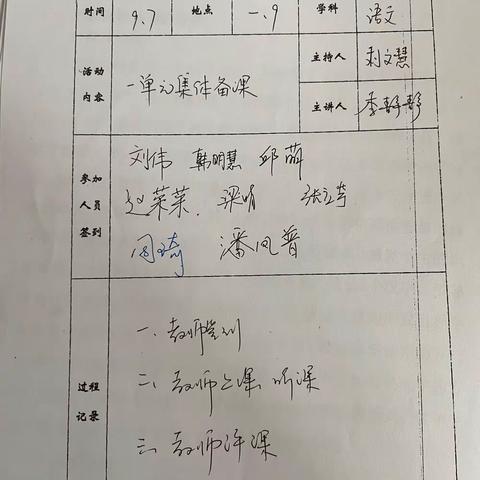 时间 9.7 地点 一.9 学科 语文
活动内容 一单元集体备课 主持人 刘文慧
主讲人 李静静
参加人员签到 刘伟 韩明慧 邱萌
赵荣荣. 梁明
周琦 潘风普
过程记录 一、教师签到
二、教师上课,听课
三、教师评课